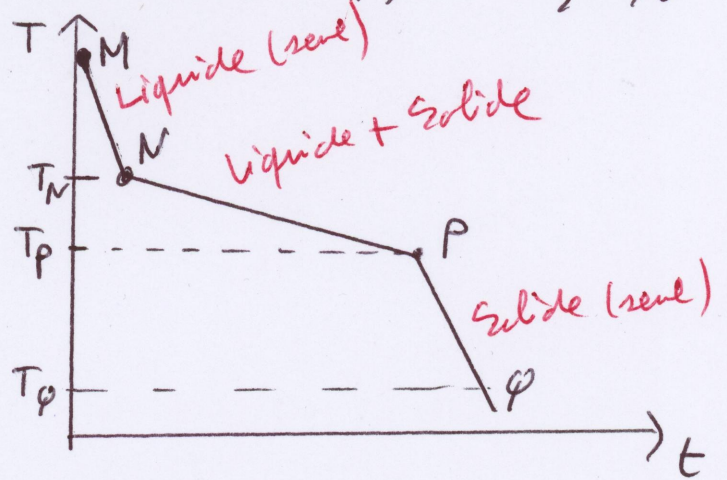 T
M
Liquide (seul)
N
Liquide + Solide
T_N
T_P
P
Solide (seul)
T_φ
φ
t